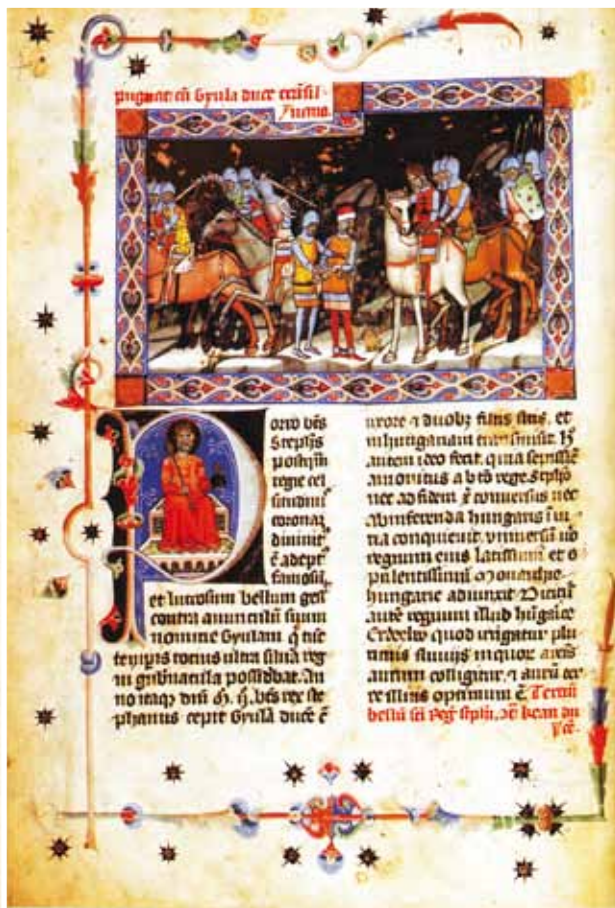 pugnat cū Gyula duce trāsil-
uano.
orro bt̄s
Steph̄s
postq̄m
regie cel
situdinis
coronaȝ
diuinit̉
ē adept̉
famosū
et lucrosum bellum gess
contra auunculū suum
nomine Gyulam q̄ tūc
temp̄is totius ultra siluā reg
ni gub̄nacula possidebat. An
no itaq̄ dn̄i bt̄s rex ste
phanus cepit Gyulā ducē ē
uxore ⁊ duobȝ filiis suis, et
in hungariam transmisit. H̄
autem ideo fecit, quia sepissīe
amonitus a b̄to rege Steph̄o
nec ad fidem ē conuersus nec
ab inferenda hungaris īiu
ria conquieuit. uniuersū ūo
regnum eius latissimū et o
pulentissimū Monarchie
hungarie adiunxit Dicit̉
autē regnum illud hūgrice
Erdeelw quod irrigatur plu
rimis fluuijs in quor arēis
aurum colligitur, ⁊ aurū ter
re illius optimum ē. Tertiū
bellū sci Reg̉ steph̄i, Kean du
cē.